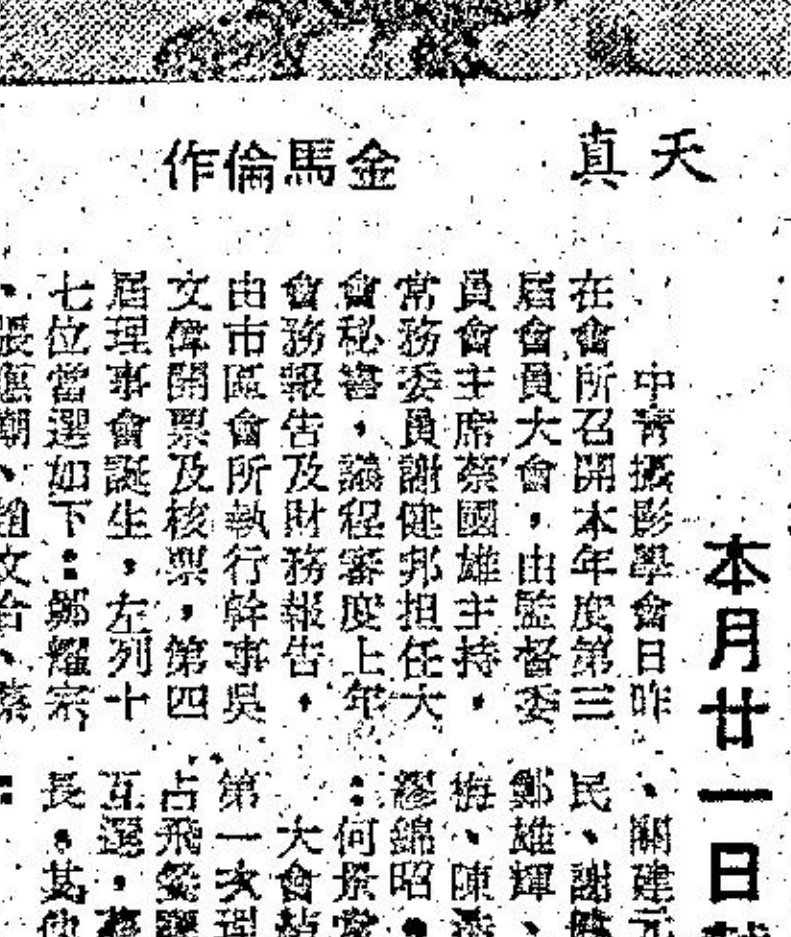 天真
金馬倫作
本月廿一日
中青攝影學會日昨
在會所召開本年度第三
屆會員大會，由監督委
員會主席蔡國雄主持，
常務委員謝健邦担任大
會秘書，議程審度上年
會務報告及財務報告，
由市區會所執行幹事吳
文偉開票及核票，第四
屆理事會誕生，左列十
七位當選如下：鄭耀宗
、張應潮、趙文治、蔡
、關建元
民、謝
鄭雄輝、
梅、陳
繆錦昭。
：何景常
大會
第一次理
占飛
互選，
長。其